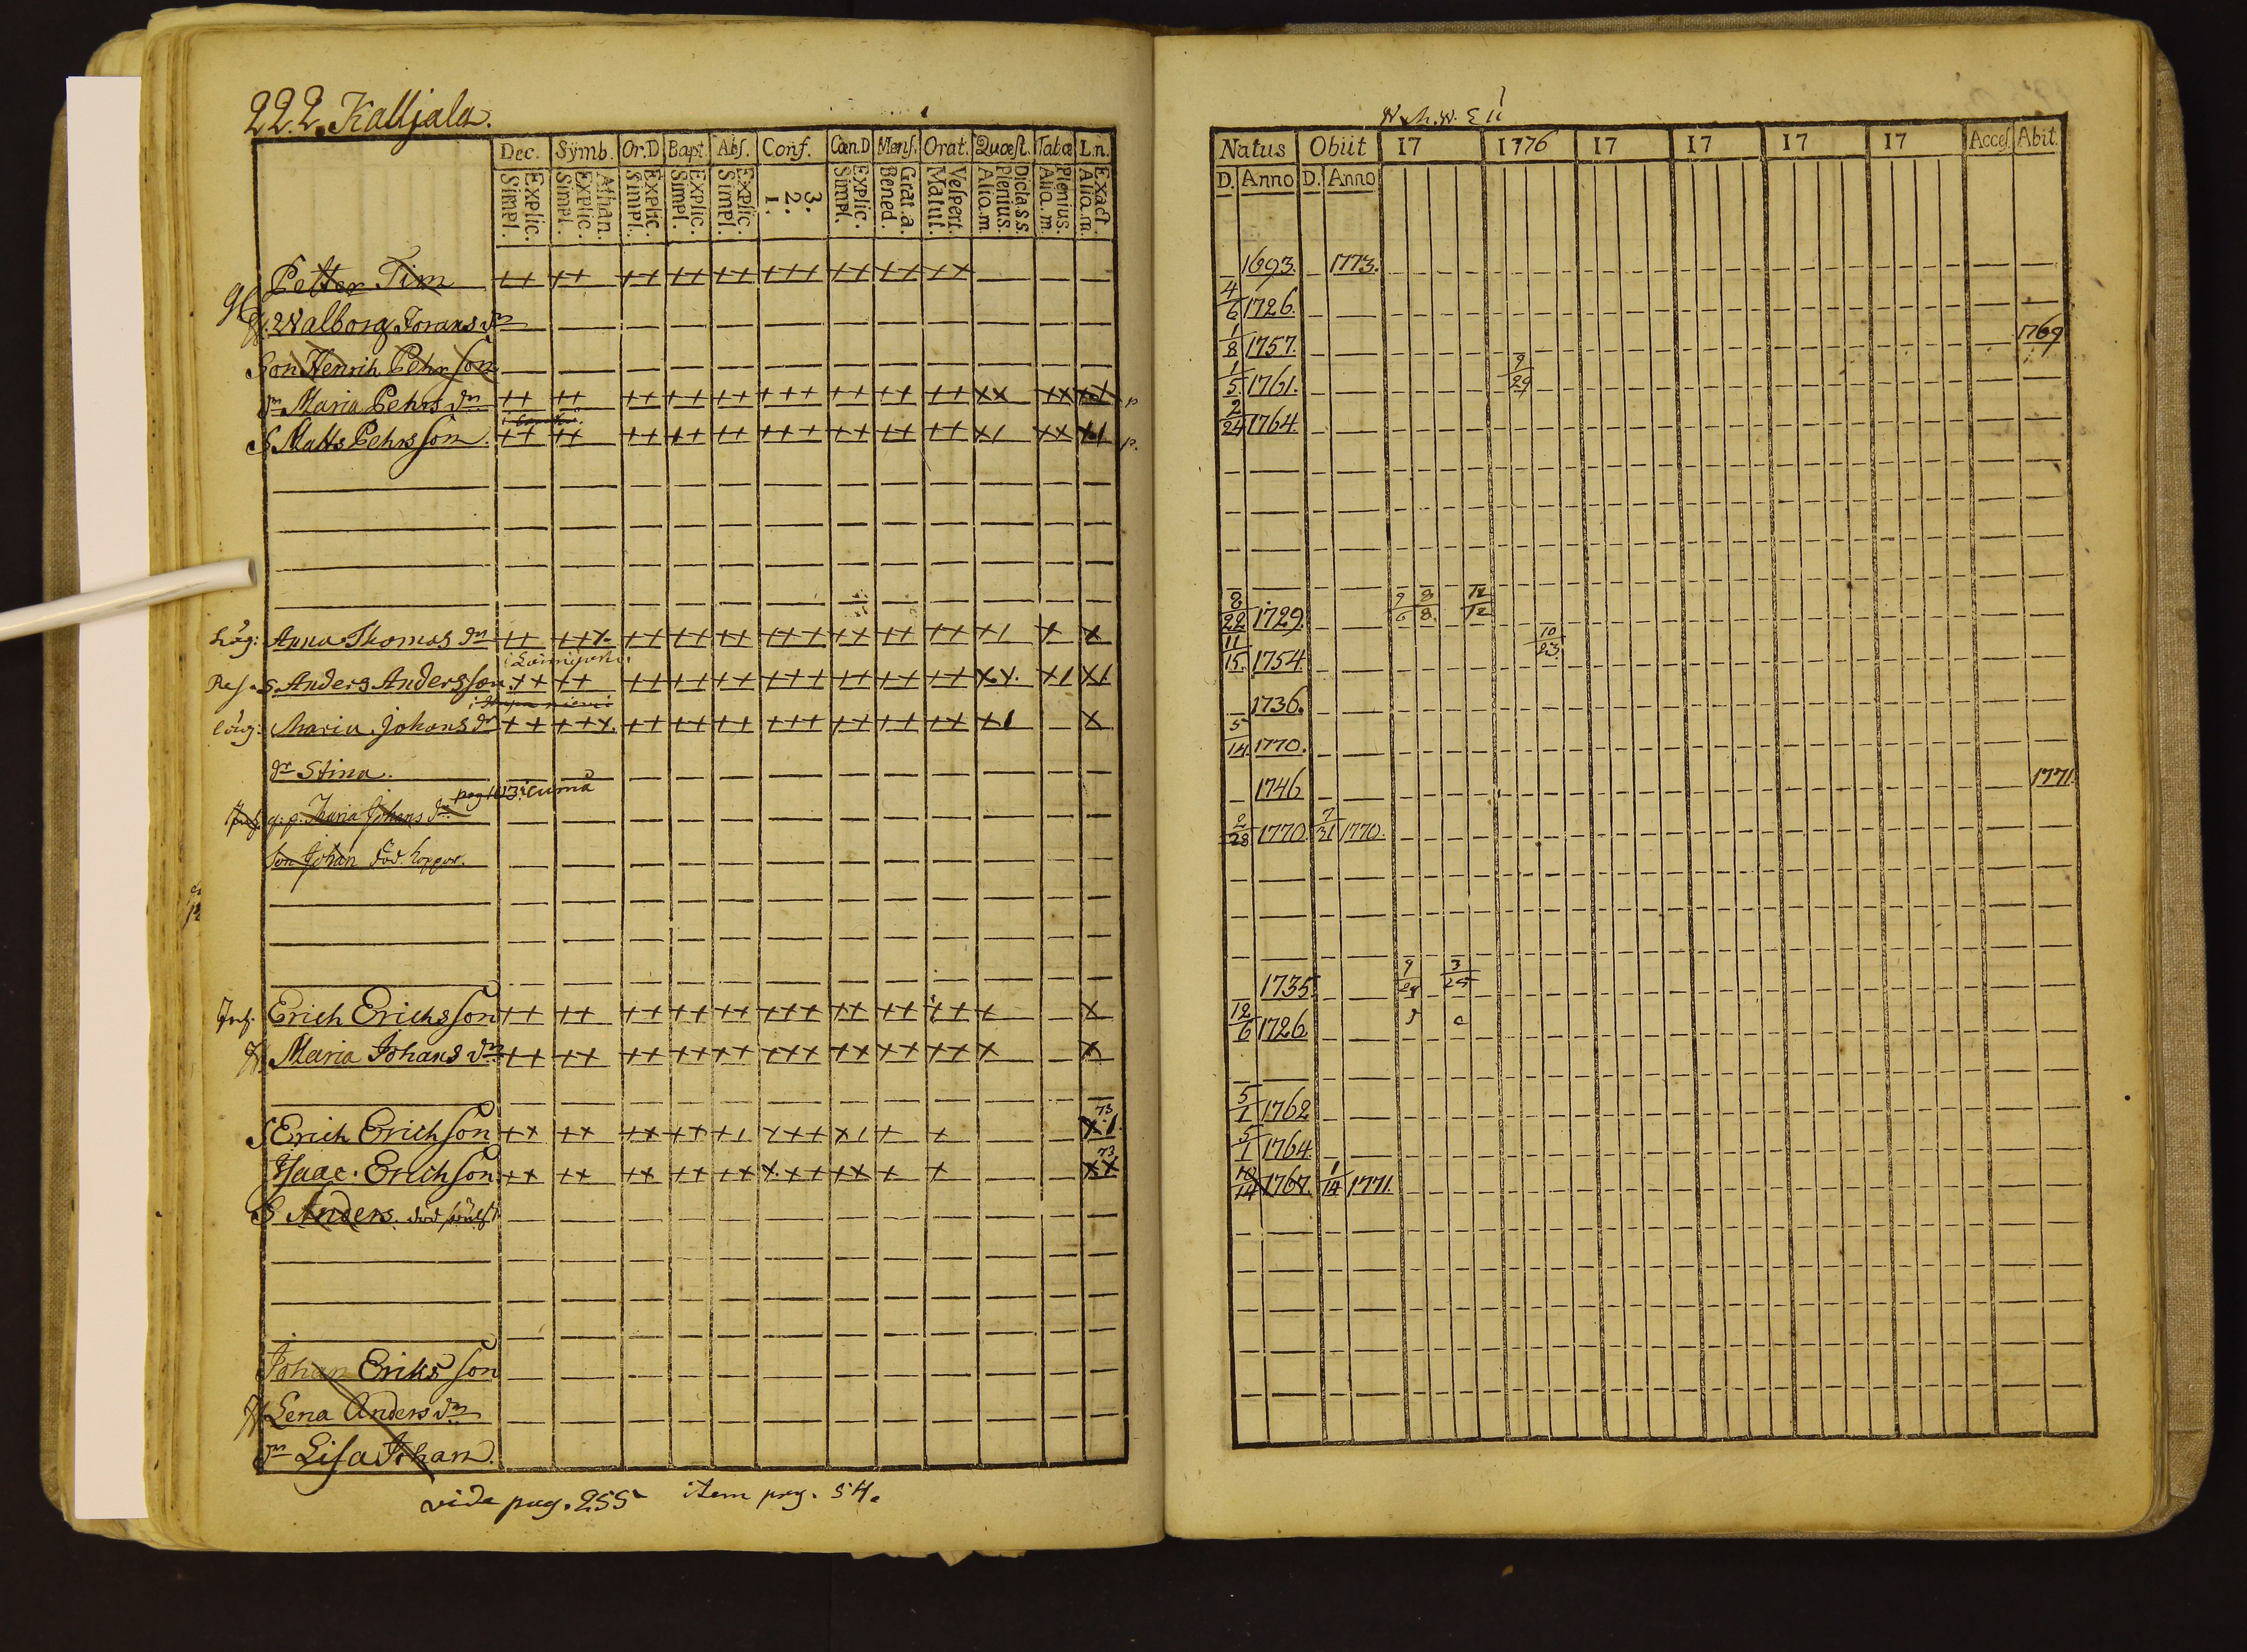 222. Kalljala.
Dec. Symb. Or.D Bapt Abs. Conf. Cœn.D Mens. Orat. Quæst. Tabæ L.n.
Explic. Simpl. Athan. Explic. Simpl. Explic. Simpl. Explic. Simpl. Explic. Simpl. 3. 2. 1. Explic. Simpl. Grat.a. Bened. Vespert. Matut. Dicta.s.s. Plenius. Alia.m. Plenius. Alia.m. Exact. Alia.m.
Petter Tim
H. 2 Walborg Jorans dr
Son Henrich Pehrsson
dr Maria Pehrs dr
S Matts Pehrsson
Anna Thomas dr
S. Anders Andersson
Maria Johans dr
dr Stina.
Maria Johans dr
Son Johan död koppor.
Inh. Erich Erichsson
H. Maria Johans dr
S Erich Erichson 73
Isaac Erichson 73
S Anders. död
Johan Eriksson
H Lena Anders dr
dr Lisa Johan
vide pag. 255 item pag. 54.
Natus Obiit 17 1776 17 17 17 17 Acces. Abit.
D. Anno D. Anno
1693. 1773.
4/6 1726.
1/8 1757. 1769
1/5 1761. 9/29
2/24 1764.
8/22 1729. 9/6 8/8 12/12
11/15. 1754 10/23.
1736.
5/14. 1770.
1746 1771.
2/28 1770. 7/31 1770.
1735. 9/29 3/25
12/6 1726.
5/1 1762
5/1 1764
10/14 1767. 1/14 1771.